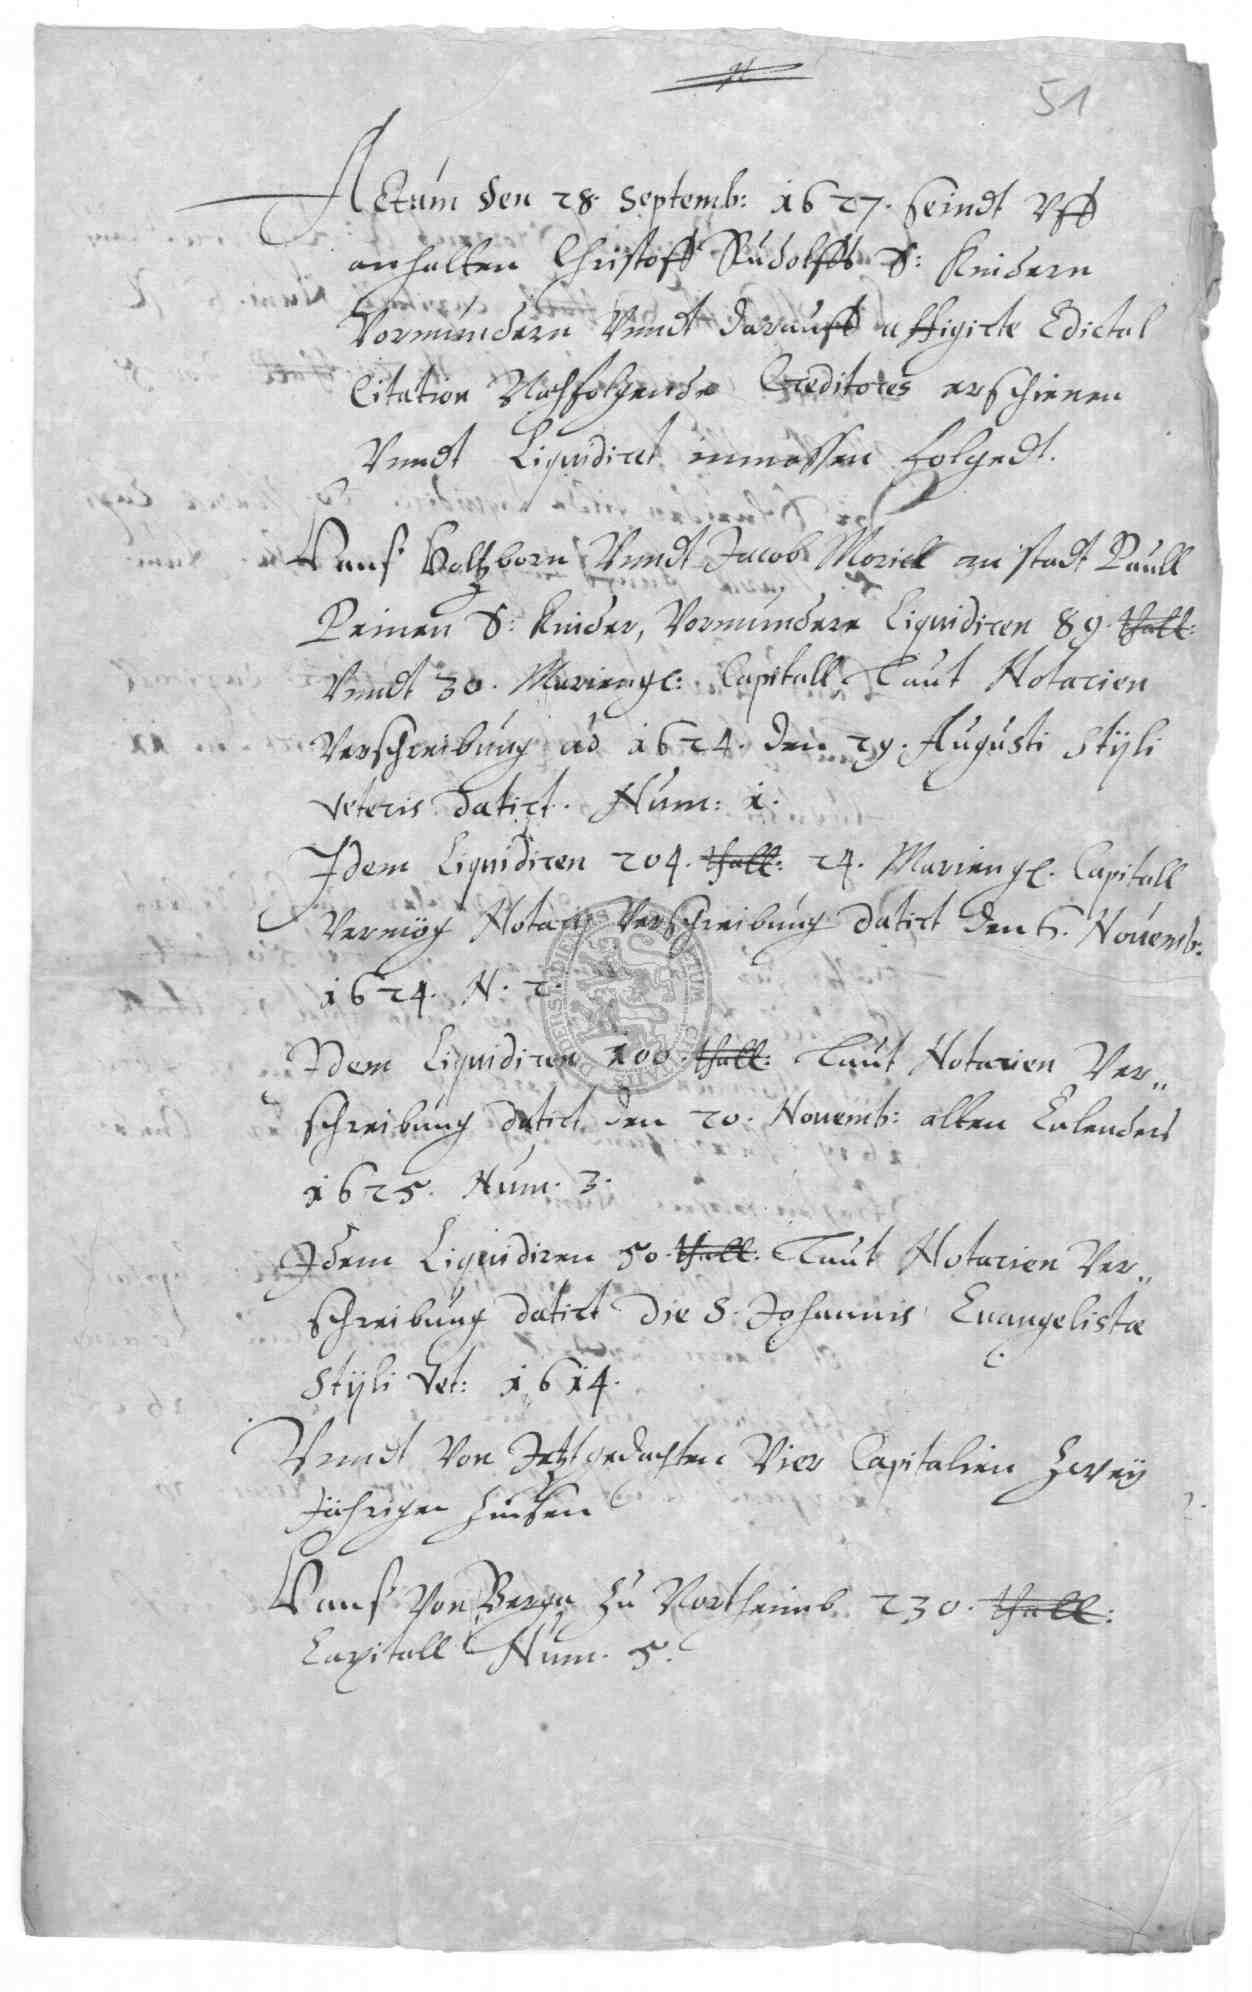 51
Actum den 28. Septemb: 1627. seindt Uff
anhalten Christoff Rudolffs S: Kindern
Vormundern Unndt darauff affigirte Edictal
Citation Nachfolgende Creditores erschienen
Unndt Liquidirt inmassen folgedt.
Hanß Holtzborn Unndt Jacob Moriell an stadt Paull
Peinen S: Kinder, Vormundere Liquidiren 89. thall:
Unndt 30. Mariengl: Capitall Laut Notarien
Verschreibung ad 1624. den 29. Augusti Stÿli
veteris datirt. Num: 1.
Idem Liquidiren 204. thall: 24. Mariengl. Capitall
Vermög Notarÿ Verschreibung datirt den 6. Nouemb:
1624. N. 2.
Idem Liquidiren 100. thall: Laut Notarien Ver„
schreibung datirt den 20. Nouemb: alten Calenders
1625. Num. 3.
Idem Liquidiren 50. thall: Laut Notarien Ver„
schreibung datirt die S. Johannis Euangelistæ
Stÿli Vet: 1614.
Unndt Von Jetztgedachten Vier Capitalien Zweÿ
Jährigen Zinßen
Hanß Von Bergn Zu Northeimb 230. thall:
Capitall Num. 5.